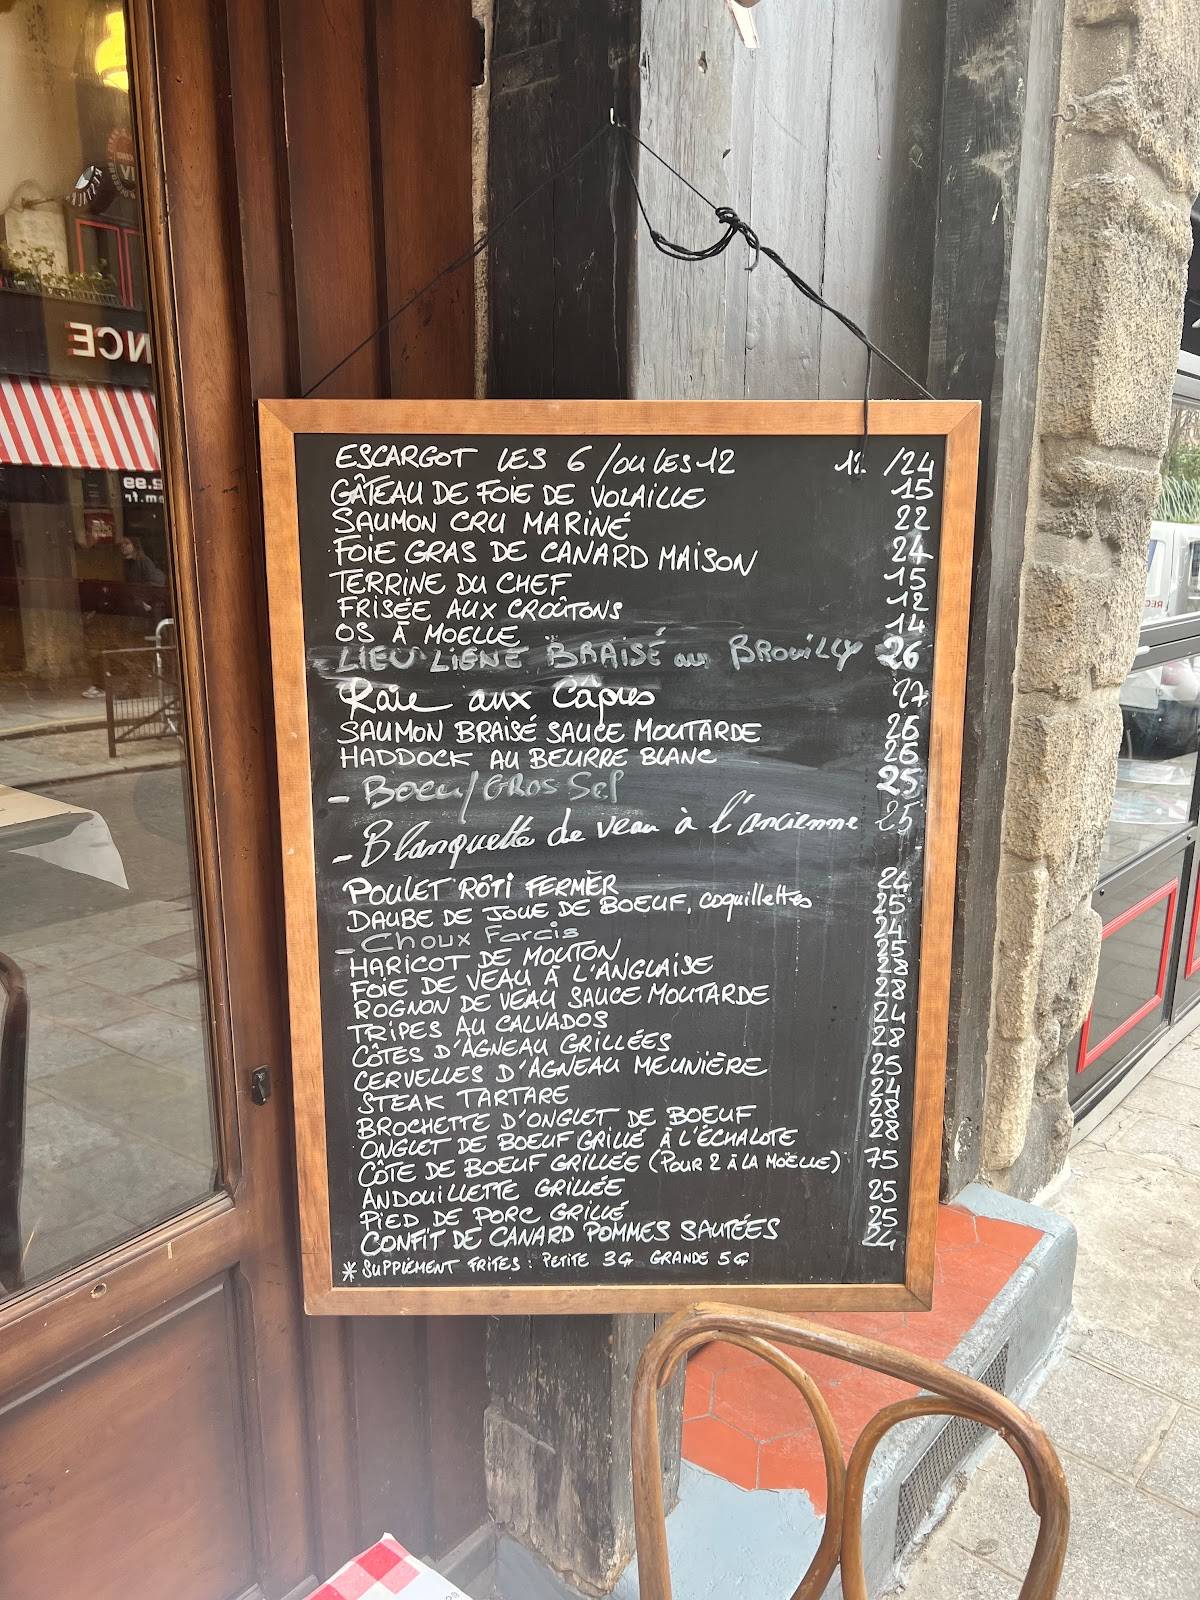 ESCARGOT LES 6 / OU LES 12 12 / 24
GÂTEAU DE FOIE DE VOLAILLE 15
SAUMON CRU MARINÉ 22
FOIE GRAS DE CANARD MAISON 24
TERRINE DU CHEF 15
FRISÉE AUX CROÛTONS 12
OS À MOELLE 14
LIEU LIGNE BRAISÉ au BROUILLY 26
Raie aux Câpres 27
SAUMON BRAISÉ SAUCE MOUTARDE 26
HADDOCK AU BEURRE BLANC 26
- Boeuf GROS Sel 25
- Blanquette de veau à l'ancienne 25
POULET RÔTI FERMIER 24
DAUBE DE JOUE DE BOEUF, coquillettes 25
- Choux Farcis 24
HARICOT DE MOUTON 25
FOIE DE VEAU À L'ANGLAISE 28
ROGNON DE VEAU SAUCE MOUTARDE 28
TRIPES AU CALVADOS 24
CÔTES D'AGNEAU GRILLÉES 28
CERVELLES D'AGNEAU MEUNIÈRE 25
STEAK TARTARE 24
BROCHETTE D'ONGLET DE BOEUF 28
ONGLET DE BOEUF GRILLÉ À L'ÉCHALOTE 28
CÔTE DE BOEUF GRILLÉE (POUR 2 À LA MOËLLE) 75
ANDOUILLETTE GRILLÉE 25
PIED DE PORC GRILLÉ 25
CONFIT DE CANARD POMMES SAUTÉES 24
* SUPPLEMENT FRITES : PETITE 3€ GRANDE 5€
NCE